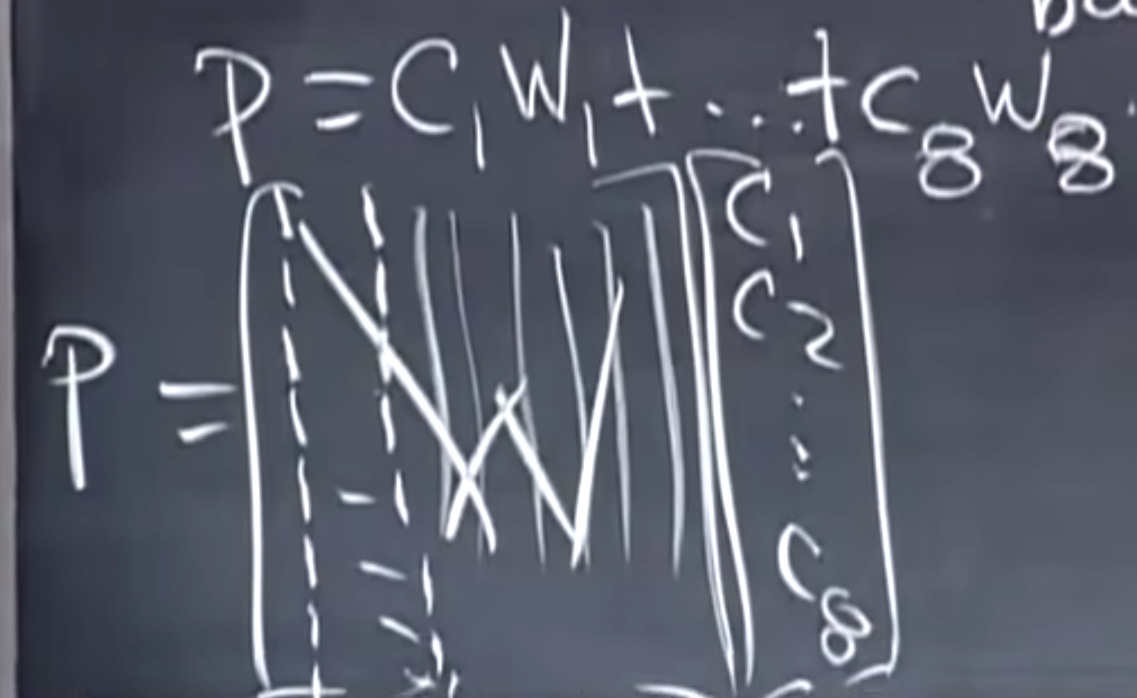 P = C₁ W₁ + ... + C₈ W₈
P = [ W ] [ C₁ C₂ ⋮ C₈ ]